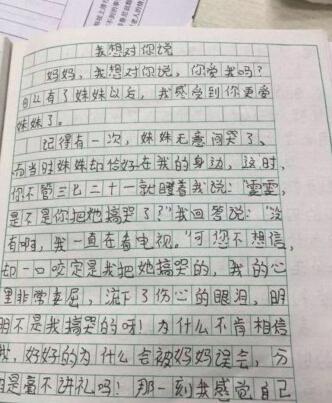 我想对你说
妈妈,我想对你说,你爱我吗?
自从有了妹妹以后,我感受到你更爱
妹妹了。
记得有一次,妹妹无意间哭了、
而当时妹妹却恰好在我的身边,这时,
你不管三七二十一就瞪着我说:“雯雯,
是不是你把她搞哭了?”我回答说:“没
有啊,我一直在看电视。”可您不想信,
却一口咬定是我把她搞哭的,我的心
里非常委屈,流下了伤心的眼泪,明
明不是我搞哭的呀!为什么不肯相信
我,好好的为什么会被妈妈误会,分
明是毫不讲礼吗!那一刻我感觉自己